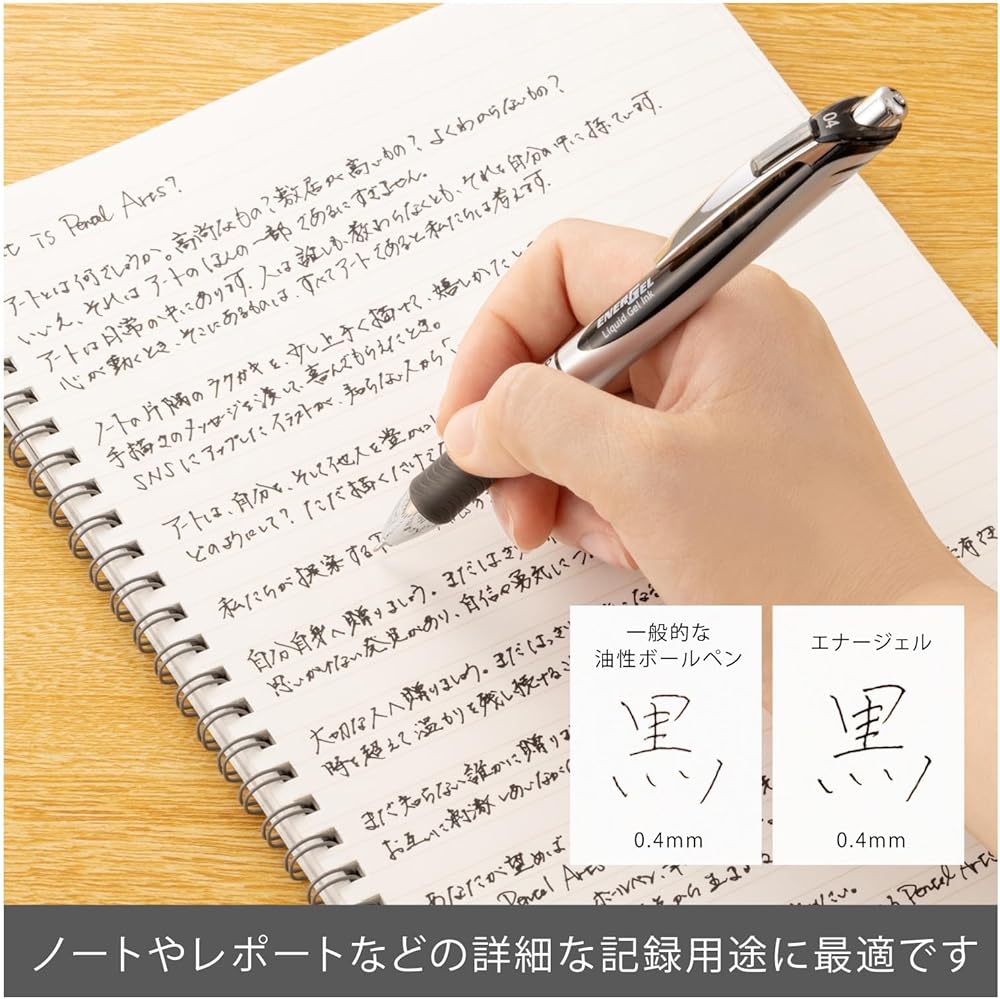 t is Pentel Arts?
アートとは何でしょうか。高尚なもの？敷居が高いもの？よくわからないもの？
いいえ、それはアートのほんの一部であるにすぎません。
アートは日常の中にあります。人は誰しも、教わらなくとも、それを自分の中に持っています。
心が動くとき、そこにあるものは、すべてアートであると私たちは考えます。
ノートの片隅のラクガキを、少し上手く描けて、嬉しかったとき
手描きのメッセージを渡して、喜んでもらえたとき。
SNSにアップしたイラストが、知らない人から「
アートは、自分を、そして他人を豊かに
どのようにして？ただ描くだけで
私たちが提案する
自分自身へ贈りましょう。まだはっきり
思いがけない発見があり、自信や勇気に
大切な人へ贈りましょう。まだはっきり
時を超えて温かりを残し続ける
まだ知らない誰かに贈りま
お互いに刺激しあいながら
あなたが望めば
Pentel Arts
ボールペン、
04
ENERGEL
Liquid Gel Ink
一般的な
油性ボールペン
黒
0.4mm
エナージェル
黒
0.4mm
ノートやレポートなどの詳細な記録用途に最適です